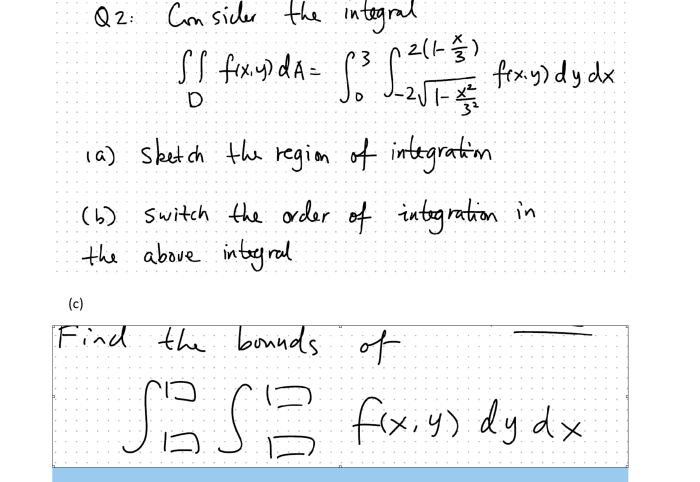 Q2: Consider the integral
∬_D f(x,y) dA = ∫_0^3 ∫_{-2√(1-x²/3²)}^{2(1-x/3)} f(x,y) dy dx
(a) Sketch the region of integration
(b) Switch the order of integration in
the above integral
(c)
Find the bounds of
∫_□^□ ∫_□^□ f(x,y) dy dx